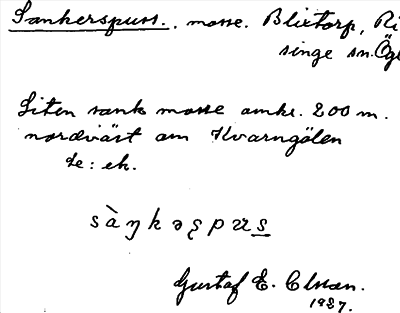 Sankerspuss. mosse. Blixtorp, Ri
singe sn. Ögl
Liten sank mosse omkr. 200 m.
nordväst om Kvarngölen
de: ek.
sàŋkəʂpus
Gustaf E. Olsson.
1927.